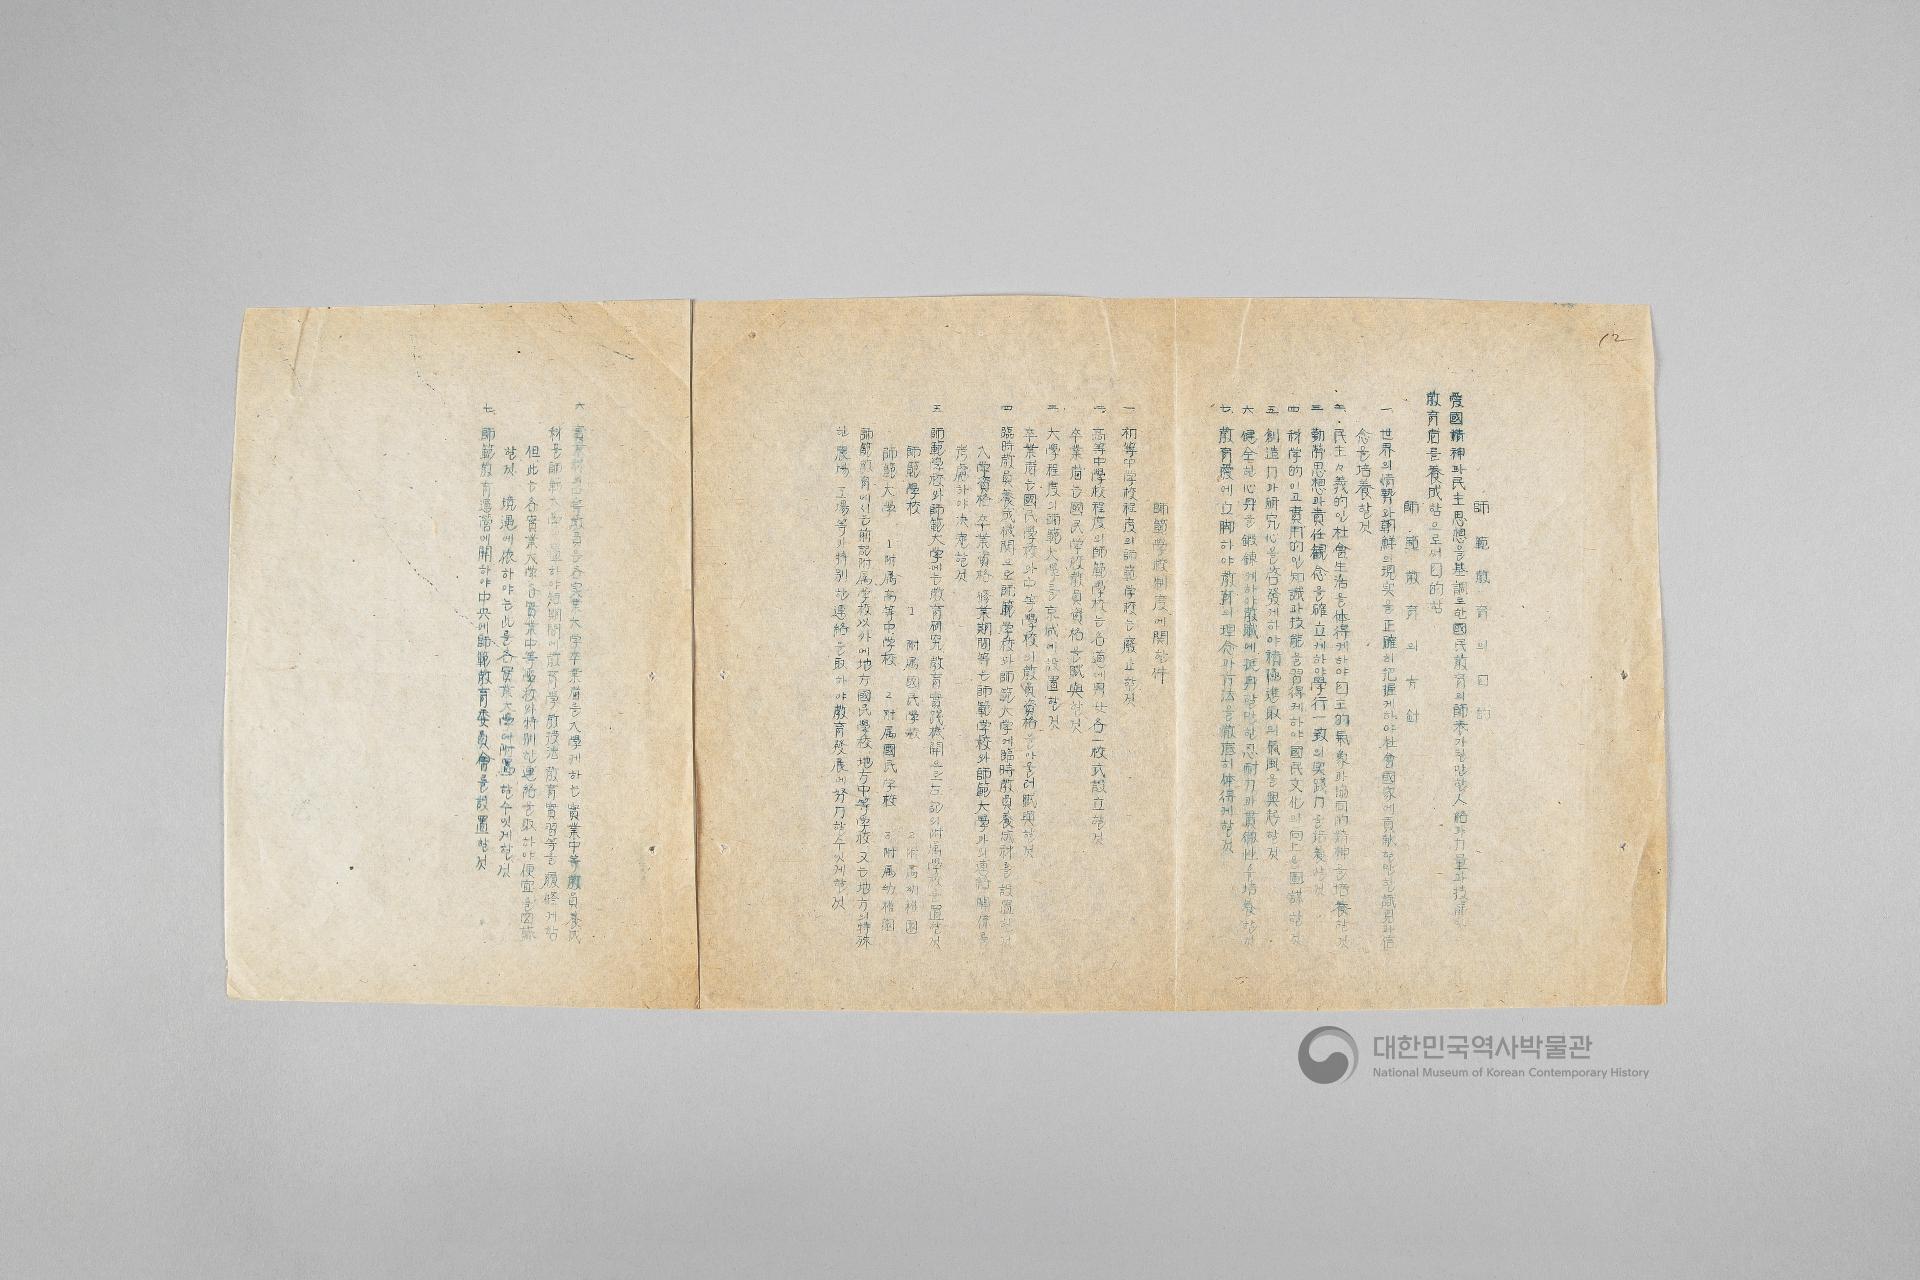 12
師範敎育의目的
愛國精神과民主思想을基調로한國民敎育의師表가될만한人格과力量과技能
敎育者를養成함으로써目的함
師範敎育의方針
一 世界의情勢와朝鮮의現実을正確히把握케하야社會國家에貢献할만한識見과信
念을培養할것
二 民主々義的인社會生活을体得케하야自主的氣象과協同的精神을培養할것
三 勤勞思想과責任観念을確立케하야學行一致의実踐力을할것
四 科学的이고実用的인知識과技能을習得케하야國民文化의向上을圖謀할것
五 創造力과研究心을啓發케하야積極進取의氣風을興起할것
六 健全한心身을鍛鍊케하야敎職에挺身할만한忍耐力과貫徹性을培養할것
七 敎育愛에立脚하야敎育의理念과方法을徹底히体得케할것
師範学校制度에関한件
一 初等中学校程度의師範学校는廢止할것
二 高等中学校程度의師範學校는各道에男女各一校式設立할것
卒業者는國民学校敎員資格을賦與할것
三 大學程度의師範大學을京城에設置할것
卒業者는國民学校와中等學校의敎員資格을아울러賦與할것
四 臨時敎員養成機関으로師範学校와師範大学에臨時敎員養成科를設置할것
入学資格 卒業資格 修業期間等은師範学校와師範大學과의連絡関係를
考慮하야決定할것
五 師範學校와師範大学에는敎育研究敎育實践機関으로左記의附属學校를置할것
師範學校 1 附属國民学校 2 附属幼稚園
師範大學 1 附属高等中学校 2 附属國民学校 3 附属幼稚園
師範敎育에서는前記附属学校以外에地方國民學校地方中等学校又는地方의特殊
한農場工場等과特別한連絡을取하야敎育發展에努力할수잇게할것
六 実業科의中等敎員은各実業大学卒業者를入學케하는實業中等敎員養成
科를師範大学에하야短期間에敎育學敎授法敎育實習等을履修케함
但此는各實業大學은實業中等學校와特別한連絡을取하야便宜를図謀
할것 境遇에依하야는此를各実業大學에附置할수잇게할것
七 師範敎育運營에関하야中央에師範敎育委員會를設置할것
대한민국역사박물관
National Museum of Korean Contemporary History